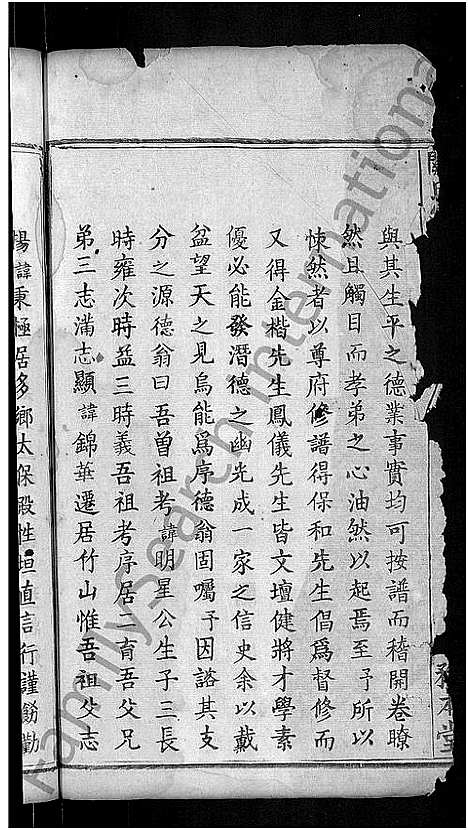 與其生平之德業事實均可按譜而稽開卷瞭
然且觸目而孝弟之心油然以起焉至予所以
悚然者以尊府修譜得保和先生倡為督修而
又得金楷先生鳳儀先生皆文壇健將才學素
優必能發潛德之幽光成一家之信史余以戴
盆望天之見烏能爲序德翁固囑予因諮其支
分之源德翁曰吾曾祖考諱明星公生子三長
時雍次時益三時義吾祖考序居二育吾父兄
弟三志滿志顯諱錦華遷居竹山惟吾祖父志
揚諱秉極居多鄉太保殿性坦直言行謹飭勤
堂
FamilySearch International